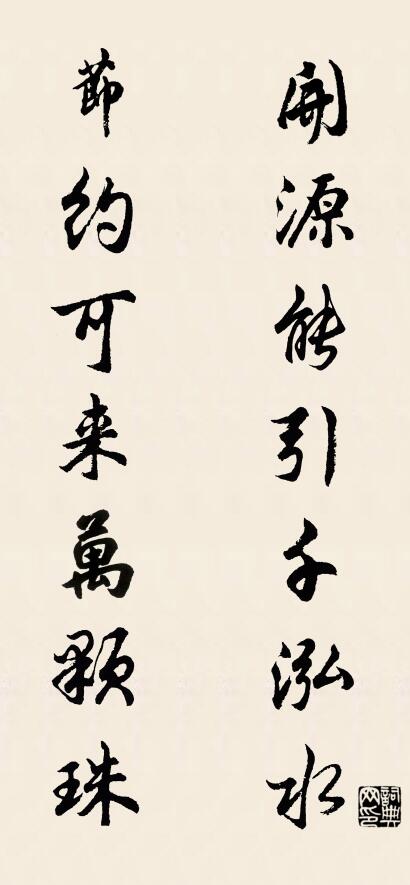 開源能引千泓水
節約可来萬顆珠
詞典網印